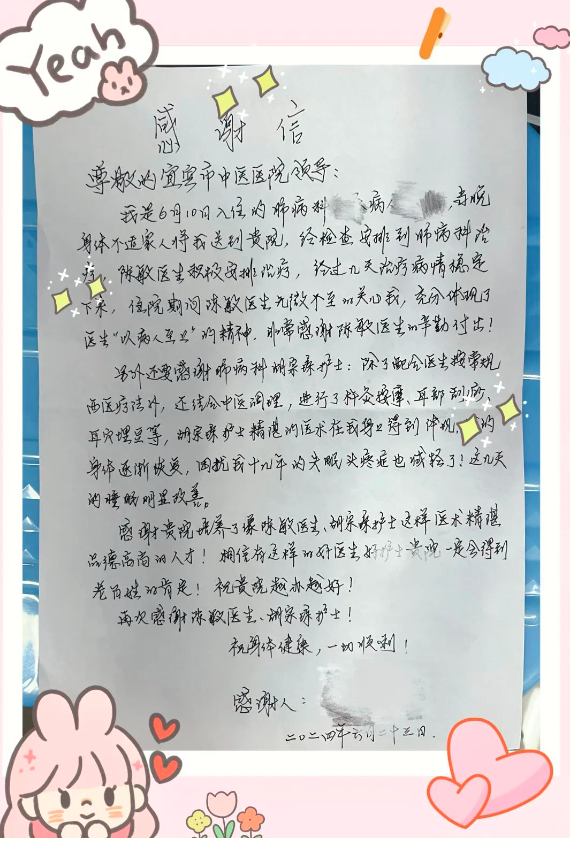 Yeah
感谢信
尊敬的宜宾市中医医院领导：
我是6月10日入住的肺病科 病 ，寺院
身体不适家人将我送到贵院，经检查安排到肺病科治
疗，陈敏医生积极安排治疗，经过几天治疗病情稳定
下来，住院期间陈敏医生无微不至的关心我，充分体现了
医生“以病人至上”的精神，非常感谢陈敏医生的辛勤付出！
另外还要感谢肺病科胡宗琛护士：除了配合医生按常规
西医疗法外，还结合中医调理，进行了针灸按摩、耳部刮痧、
耳穴埋豆等，胡宗琛护士精湛的医术在我身上得到体现， 的
身体逐渐恢复，困扰我十九年的失眠炎疼症也减轻了！这几天
的睡眠明显改善。
感谢贵院培养了象陈敏医生、胡宗琛护士这样医术精湛
品德高尚的人才！相信有这样的好医生好护士贵院一定会得到
老百姓的肯定！祝贵院越办越好！
再次感谢陈敏医生、胡宗琛护士！
祝身体健康，一切顺利！
感谢人：
二〇二四年六月二十五日．